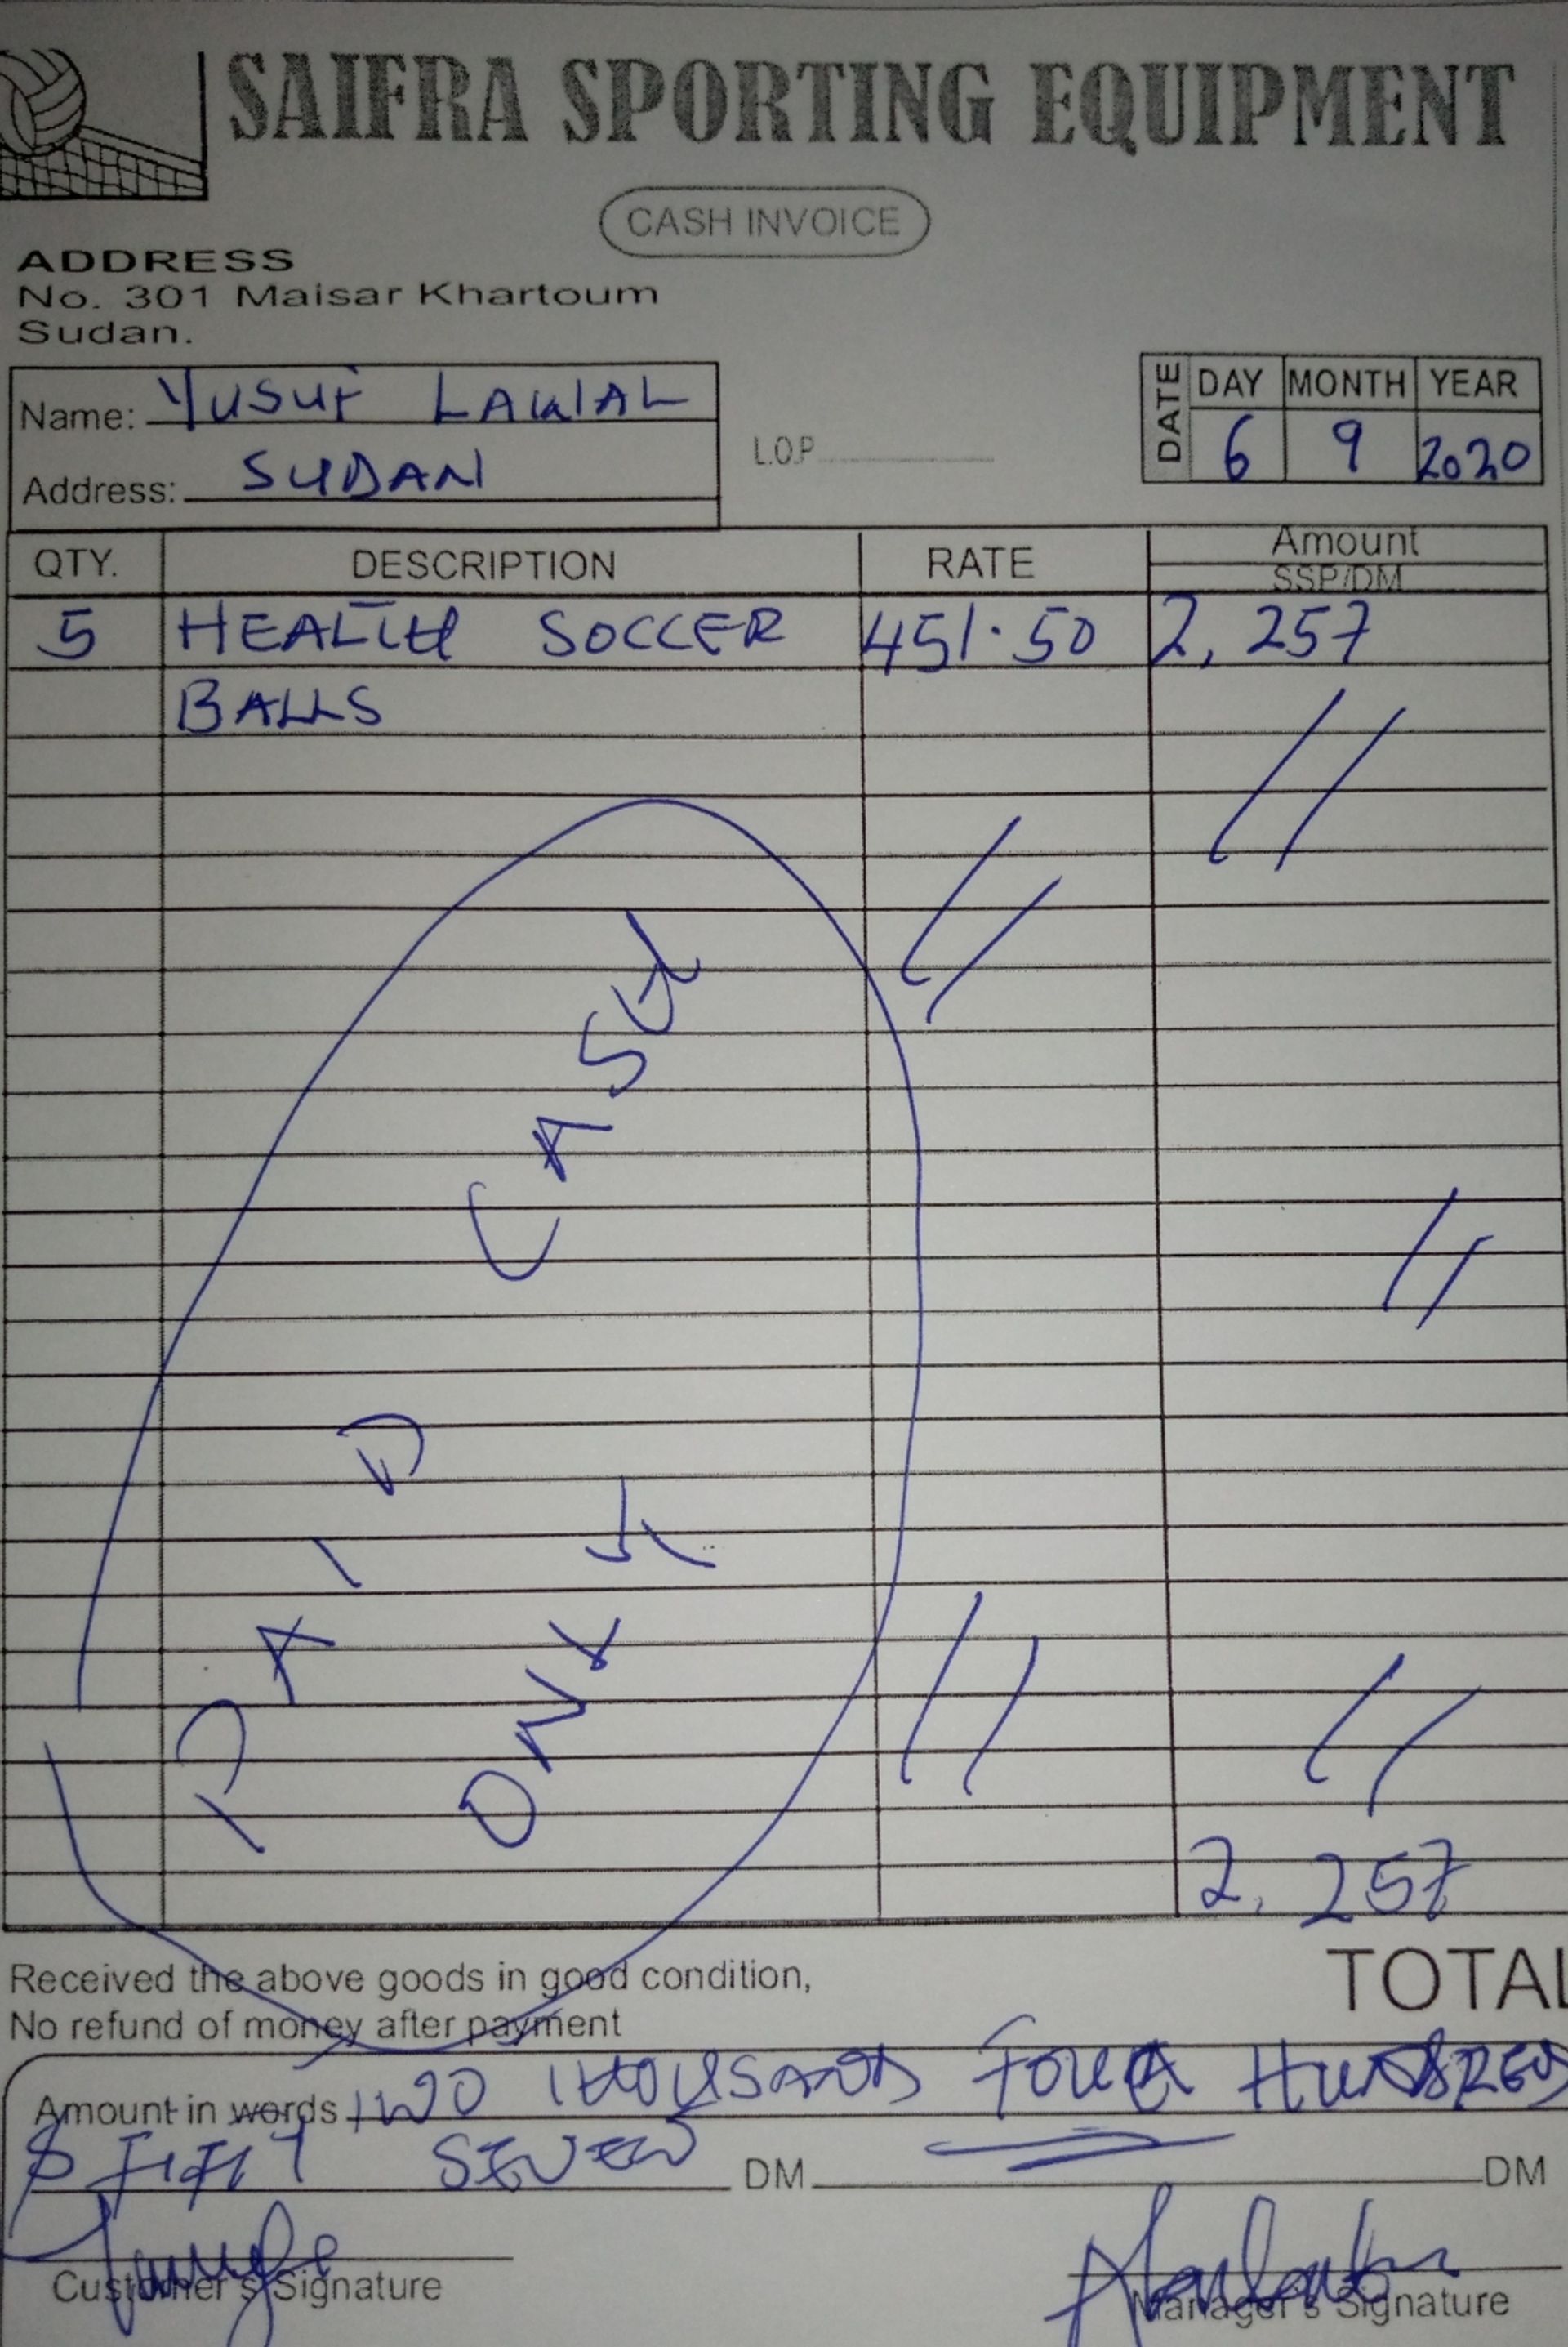 SAIFRA SPORTING EQUIPMENT
CASH INVOICE
ADDRESS
No. 301 Maisar Khartoum
Sudan.
Name: YUSUF LAWAL
Address: SUDAN
L.O.P
DATE DAY MONTH YEAR
6 9 2020
QTY. DESCRIPTION RATE Amount
SSP/DM
5 HEALTH SOCCER 451.50 2,257
BALLS
CASH
PAID
ONLY
2,257
Received the above goods in good condition,
No refund of money after payment
TOTAL
Amount in words TWO THOUSAND FOUR HUNDRED
& FIFTY SEVEN DM DM
Customer's Signature
Manager's Signature